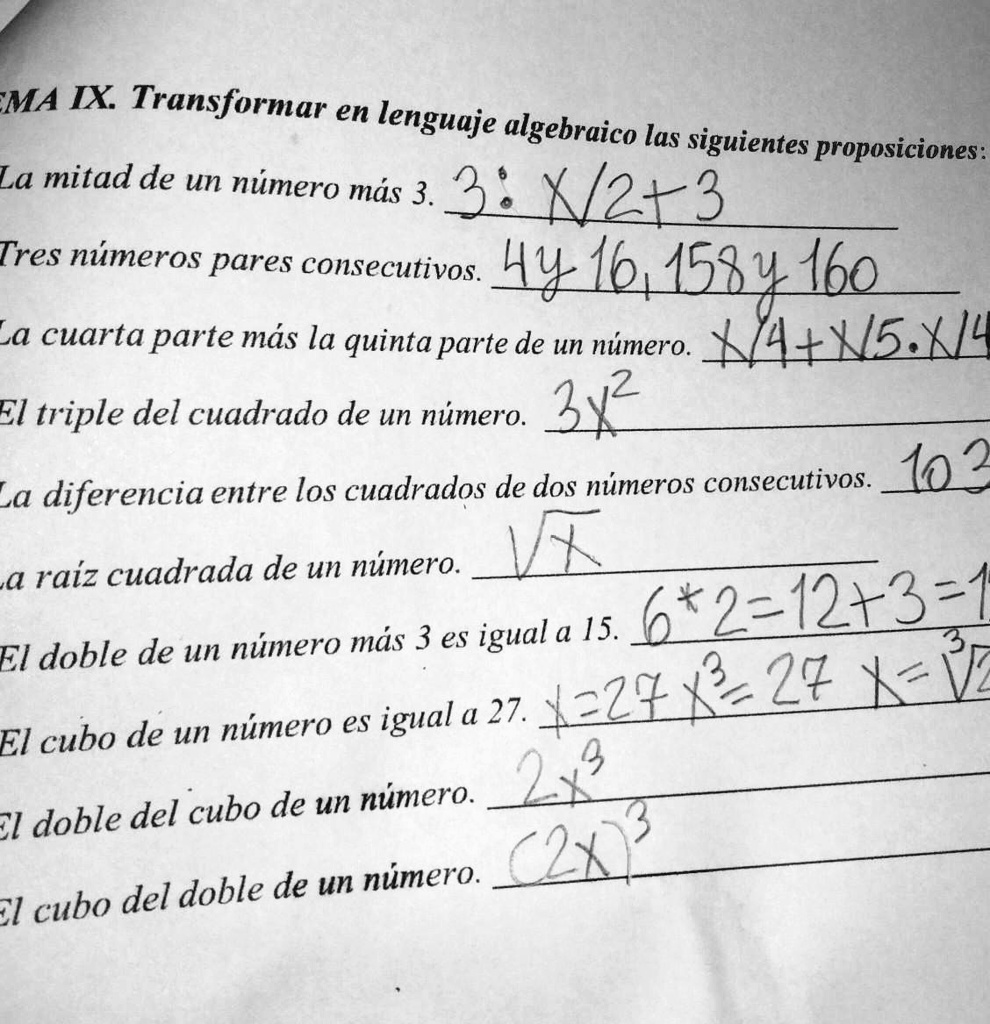 EMA IX. Transformar en lenguaje algebraico las siguientes proposiciones:
La mitad de un número más 3. 3: X/2+3
Tres números pares consecutivos. 4y 16, 158 y 160
La cuarta parte más la quinta parte de un número. X/4+X/5.X/4
El triple del cuadrado de un número. 3X²
La diferencia entre los cuadrados de dos números consecutivos. 103
La raíz cuadrada de un número. √X
El doble de un número más 3 es igual a 15. 6*2=12+3=1
El cubo de un número es igual a 27. X=27 X³=27 X=³√2
El doble del cubo de un número. 2X³
El cubo del doble de un número. (2X)³